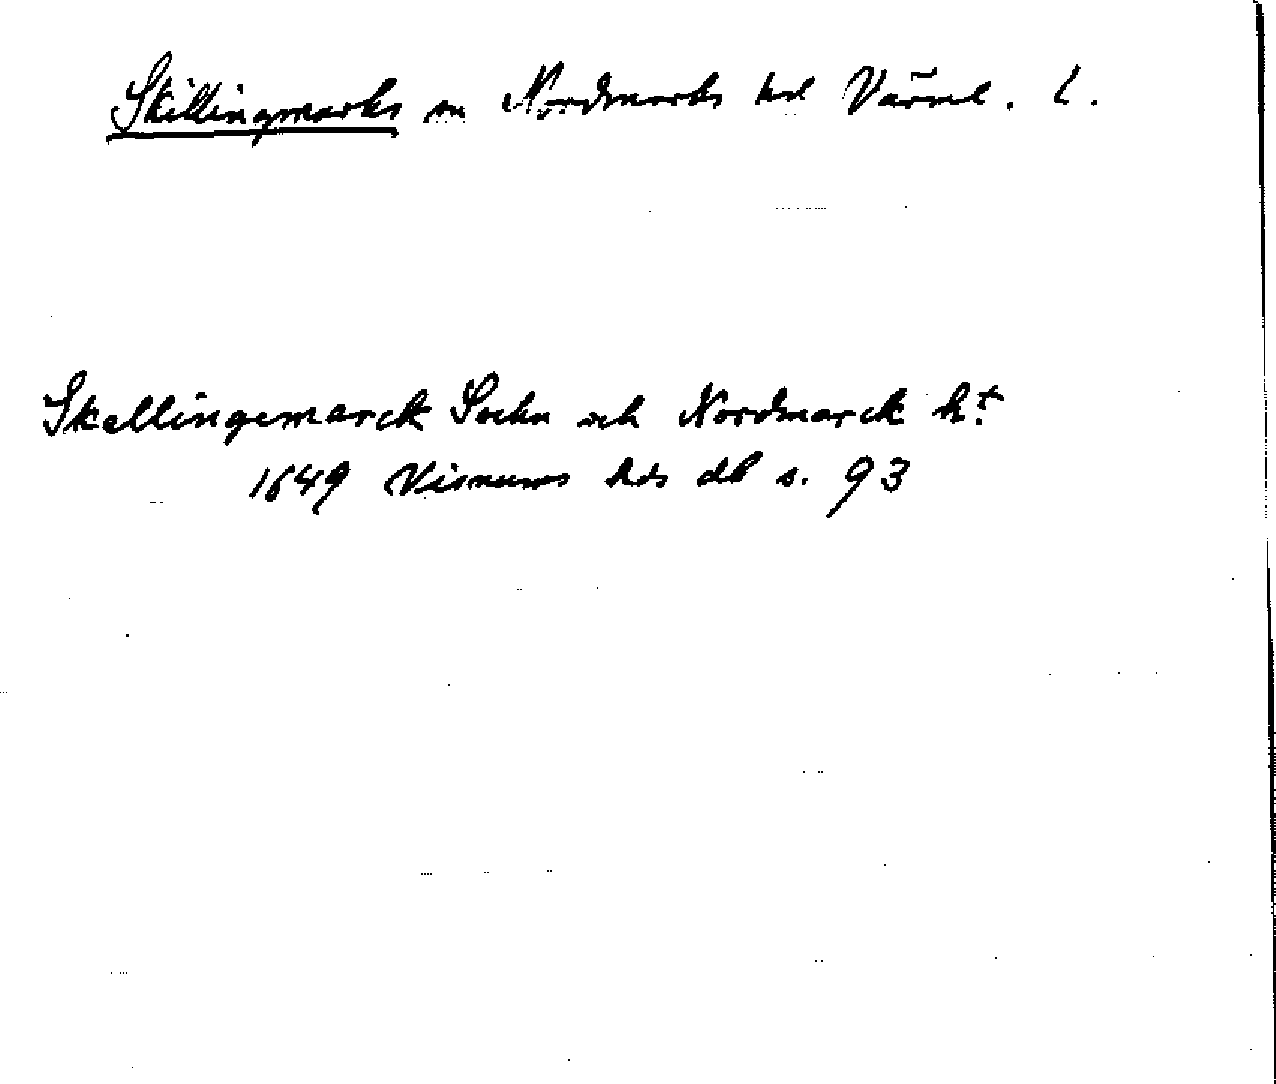 Skillingmarks sn Nordmarks hd Värml. l.
Skellingemarck Sochn och Nordmarck h:t
1649 Visnums hds db s. 93